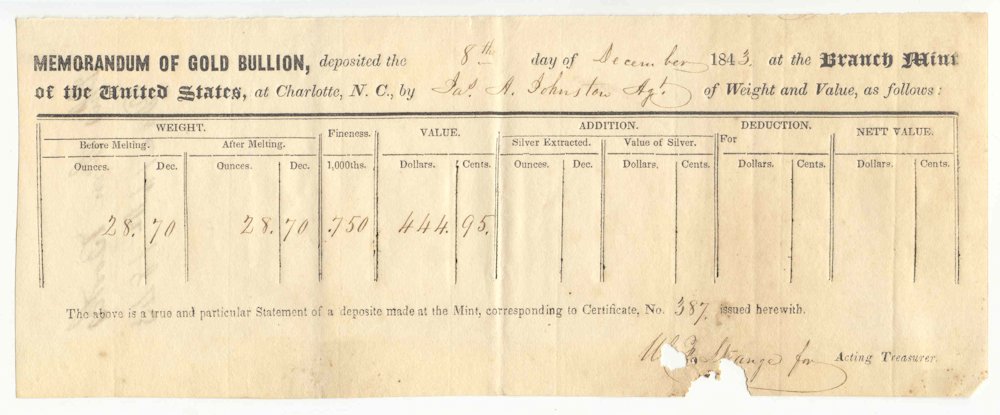 MEMORANDUM OF GOLD BULLION, deposited the 8th day of December 1843. at the Branch Mint
of the United States, at Charlotte, N. C., by Jas. A. Johnston Agt. of Weight and Value, as follows:
WEIGHT. Fineness. VALUE. ADDITION. DEDUCTION. NETT VALUE.
Before Melting. After Melting. Silver Extracted. Value of Silver. For
Ounces. Dec. Ounces. Dec. 1,000ths. Dollars. Cents. Ounces. Dec. Dollars. Cents. Dollars. Cents. Dollars. Cents.
28. 70 28. 70 .750 444. 95.
The above is a true and particular Statement of a deposite made at the Mint, corresponding to Certificate, No. 387. issued herewith.
Strange for Acting Treasurer.